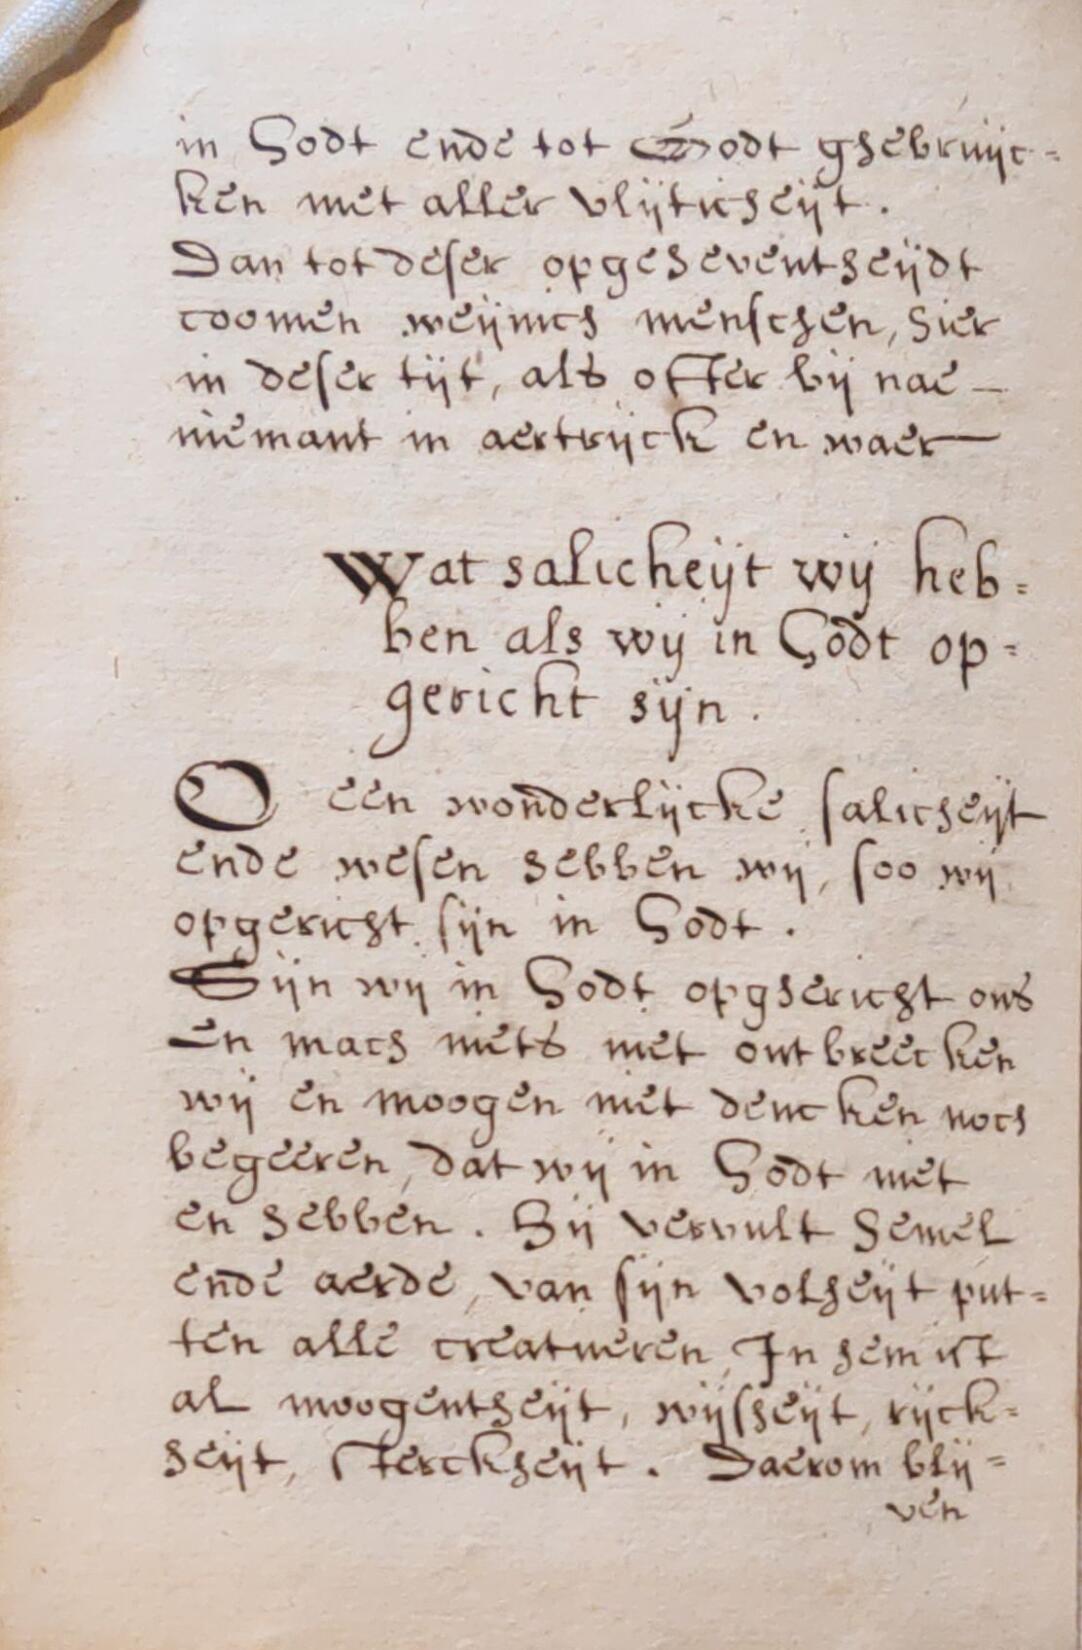 in Godt ende tot Godt ghebruijc=
ken met aller vlijticheijt.
Dan tot deser opgeheventheijdt
coomen weijnich menschen, hier
in deser tijt, als ofter bij nae –
niemant in aertrijck en waer
Wat salicheijt wij heb=
ben als wij in Godt op=
gericht sijn.
O een wonderlijcke salicheijt
ende wesen hebben wij, soo wij
opgericht sijn in Godt.
Sijn wij in Godt opghericht ons
en mach niets niet ontbreecken
wij en moogen niet dencken noch
begeeren, dat wij in Godt niet
en hebben. Hij vervult hemel
ende aerde, van sijn volheijt put=
ten alle creatueren, In hem ist
al moogentheijt, wijsheijt, rijck=
heijt, sterckheijt. Daerom blij=
ven